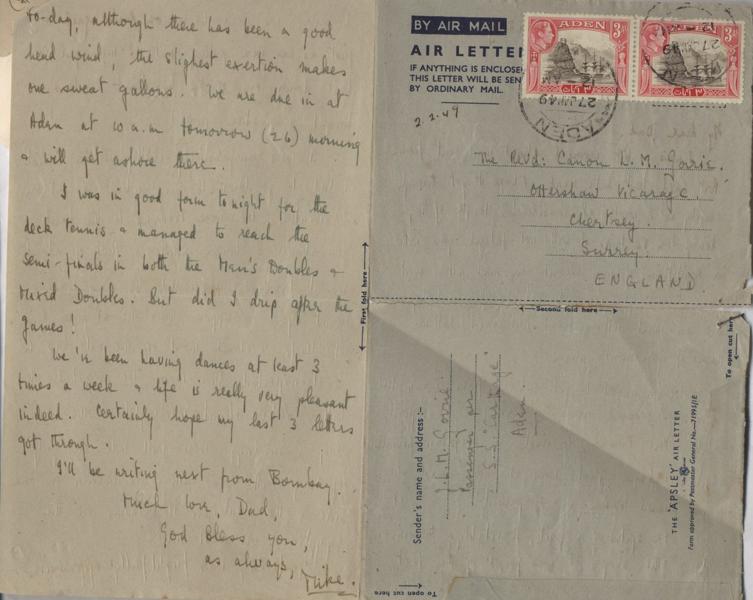 to-day, although there has been a good
head wind, the slighest exertion makes
one sweat gallons. We are due in at
Aden at 10 a.m tomorrow (26) morning
& will get ashore there.
I was in good form to night for the
deck tennis & managed to reach the
semi-finals in both the Men's Doubles &
Mixed Doubles. But did I drip after the
games!
We've been having dances at least 3
times a week & life is really very pleasant
indeed. Certainly hope my last 3 letters
got through.
I'll be writing next from Bombay.
Much love, Dad,
God bless you,
as always, Mike.
BY AIR MAIL
AIR LETTER
IF ANYTHING IS ENCLOSE
THIS LETTER WILL BE SEN
BY ORDINARY MAIL.
ADEN
3
ADEN
27 49
2.2.49
The Revd: Canon L. M. Gorrie.
Ottershaw Vicarage.
Chertsey.
Surrey.
ENGLAND.
First fold here
Second fold here
To open cut here
Sender's name and address :-
J.L.M. Gorrie.
Passenger per
S.S.
Aden.
THE 'APSLEY' AIR LETTER
Form approved by Postmaster General No.-71995/1E
To open cut here